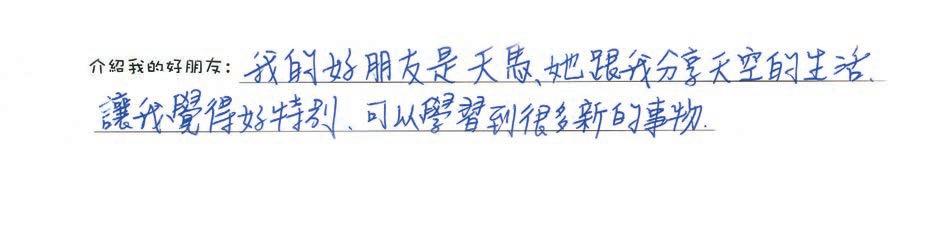 介紹我的好朋友：我的好朋友是天馬、她跟我分享天空的生活、
讓我覺得好特別、可以學習到很多新的事物.